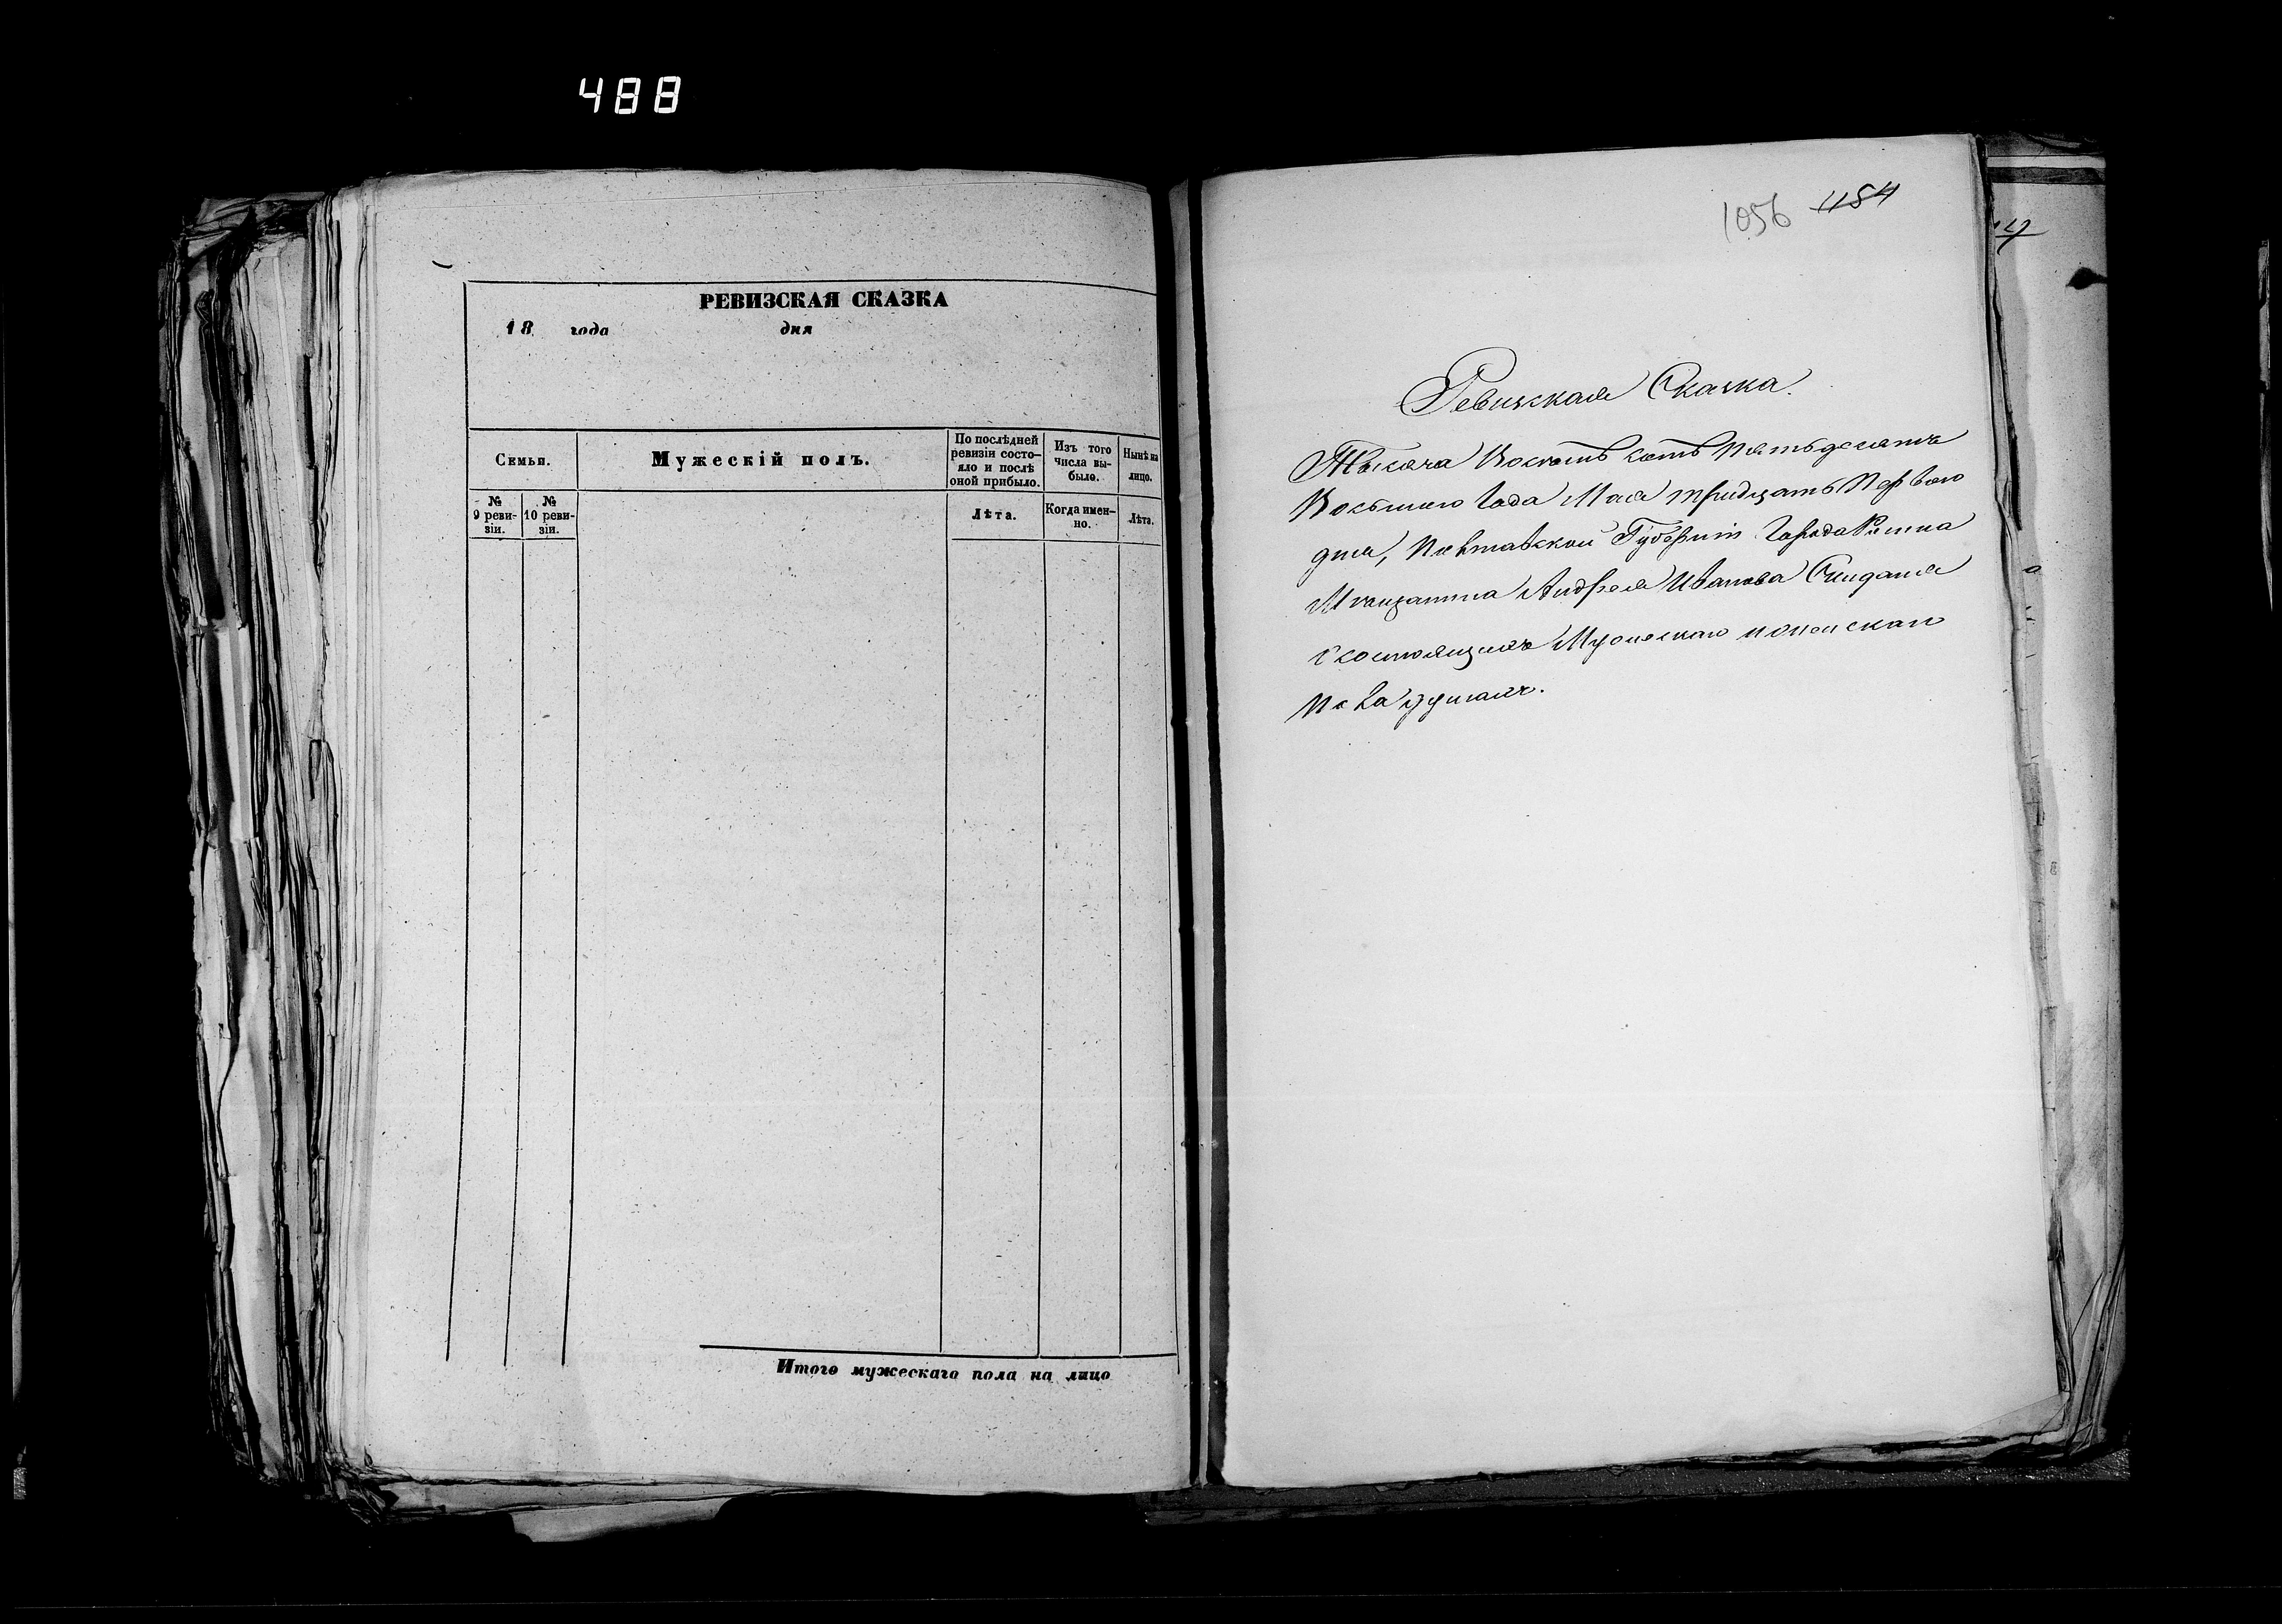 488
РЕВИЗСКАЯ СКАЗКА
18 года дня
Семьи.
Мужескій полъ.
По послѣдней ревизіи состояло и послѣ оной прибыло.
Изъ того числа выбыло.
Нынѣ на лицо.
№ 9 ревизіи.
№ 10 ревизіи.
Лѣта.
Когда именно.
Лѣта.
Итого мужескаго пола на лицо
1056 1154
Ревизская Сказка.
Тысяча Восемъ сотъ Пятьдесятъ
Восьмого Года Мая тридцать Первого
дня, Полтавской Губерніи Города
Мещанина Андрея Иванова
состоящихъ Мужеска и женскаго
Пола душахъ.